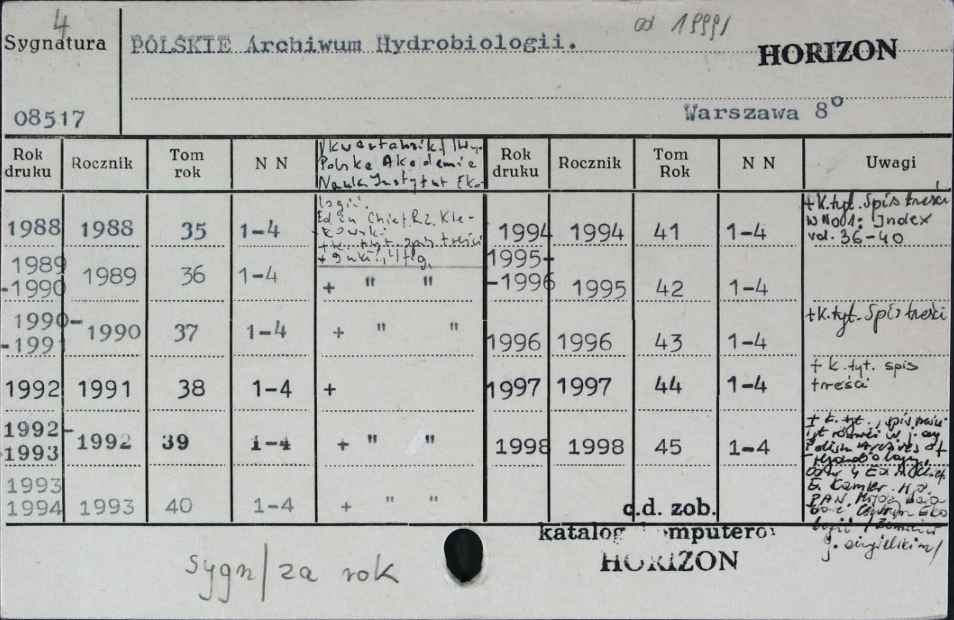 4
od 1999/
Sygnatura
POLSKIE Archiwum Hydrobiologii.
HORIZON
08517
Warszawa 8°
Rok druku Rocznik Tom rok N N
/kwartalnik/
Polska Akademia
Nauk Instytut Eko-
logii.
Ed in Chief R.Z. Kle-
kowski
+k. tyt. spis treści
Rok druku Rocznik Tom Rok N N Uwagi
1988 1988 35 1-4
1989-1990 1989 36 1-4 + " "
1990-1991 1990 37 1-4 + " "
1992 1991 38 1-4 +
1992-1993 1992 39 1-4 + " "
1993 1994 1993 40 1-4 + " "
1994 1994 41 1-4
+k.tyt. Spis treści
w No 1: Index
vol. 36-40
1995-1996 1995 42 1-4
1996 1996 43 1-4 +k.tyt. Spis treści
1997 1997 44 1-4
+ k.tyt. spis
treści
1998 1998 45 1-4
+ k.tyt., spis treści
j. angielskim/
c.d. zob.
katalog komputerowy
HORIZON
sygn/za rok